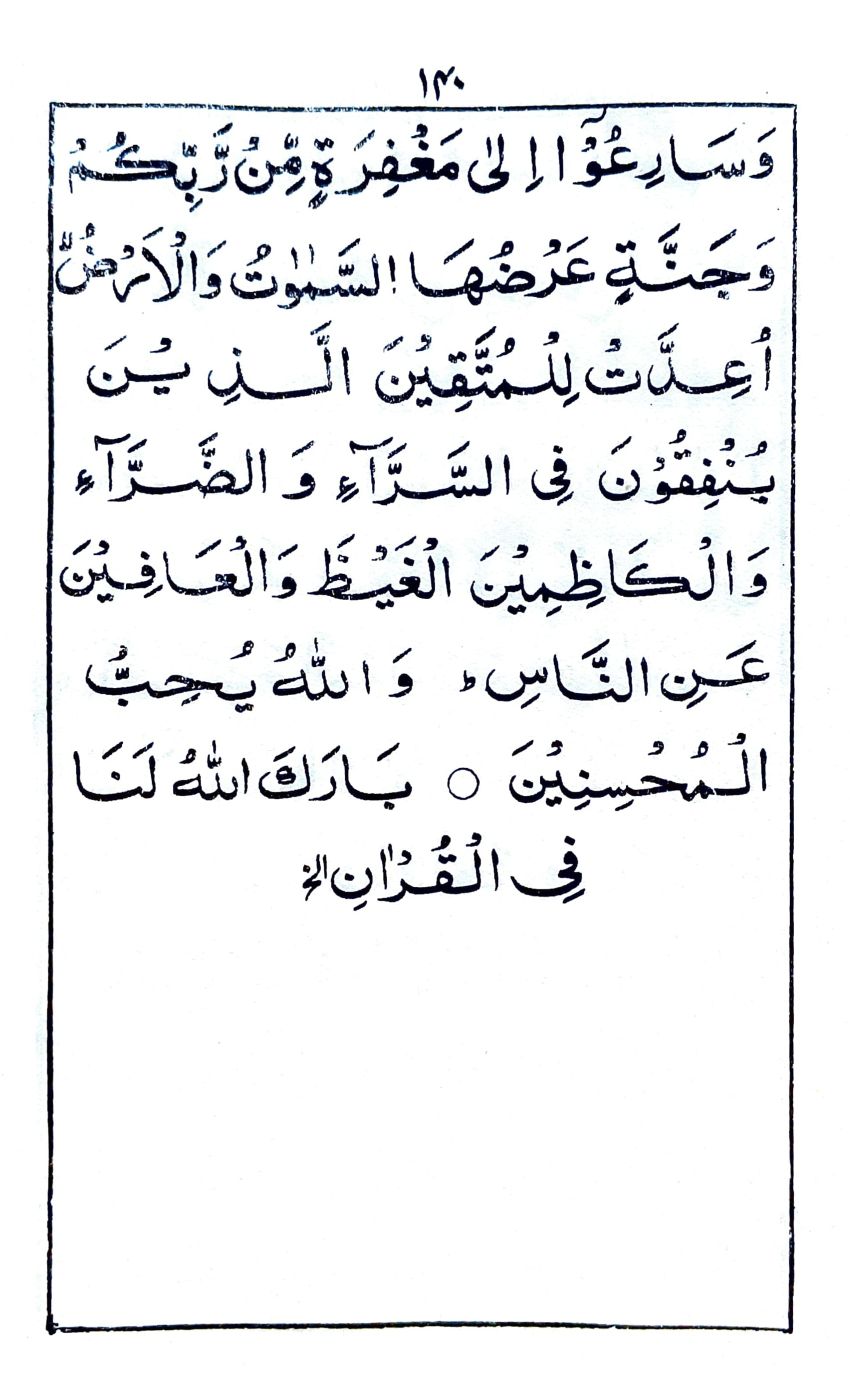 ۱۴۰
وَسَارِعُوْۤا اِلٰى مَغْفِرَةٍ مِّنْ رَّبِّكُمْ
وَجَنَّةٍ عَرْضُهَا السَّمٰوٰتُ وَالْاَرْضُ
اُعِدَّتْ لِلْمُتَّقِيْنَ الَّذِيْنَ
يُنْفِقُوْنَ فِى السَّرَّآءِ وَالضَّرَّآءِ
وَالْكَاظِمِيْنَ الْغَيْظَ وَالْعَافِيْنَ
عَنِ النَّاسِ ؕ وَاللّٰهُ يُحِبُّ
الْمُحْسِنِيْنَ ○ بَارَكَ اللّٰهُ لَنَا
فِى الْقُرْاٰنِ الخ